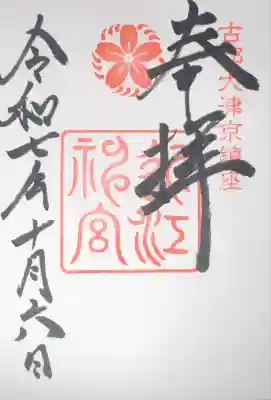 古都大津京鎮座
奉拝
近江神宮
令和七年十月六日